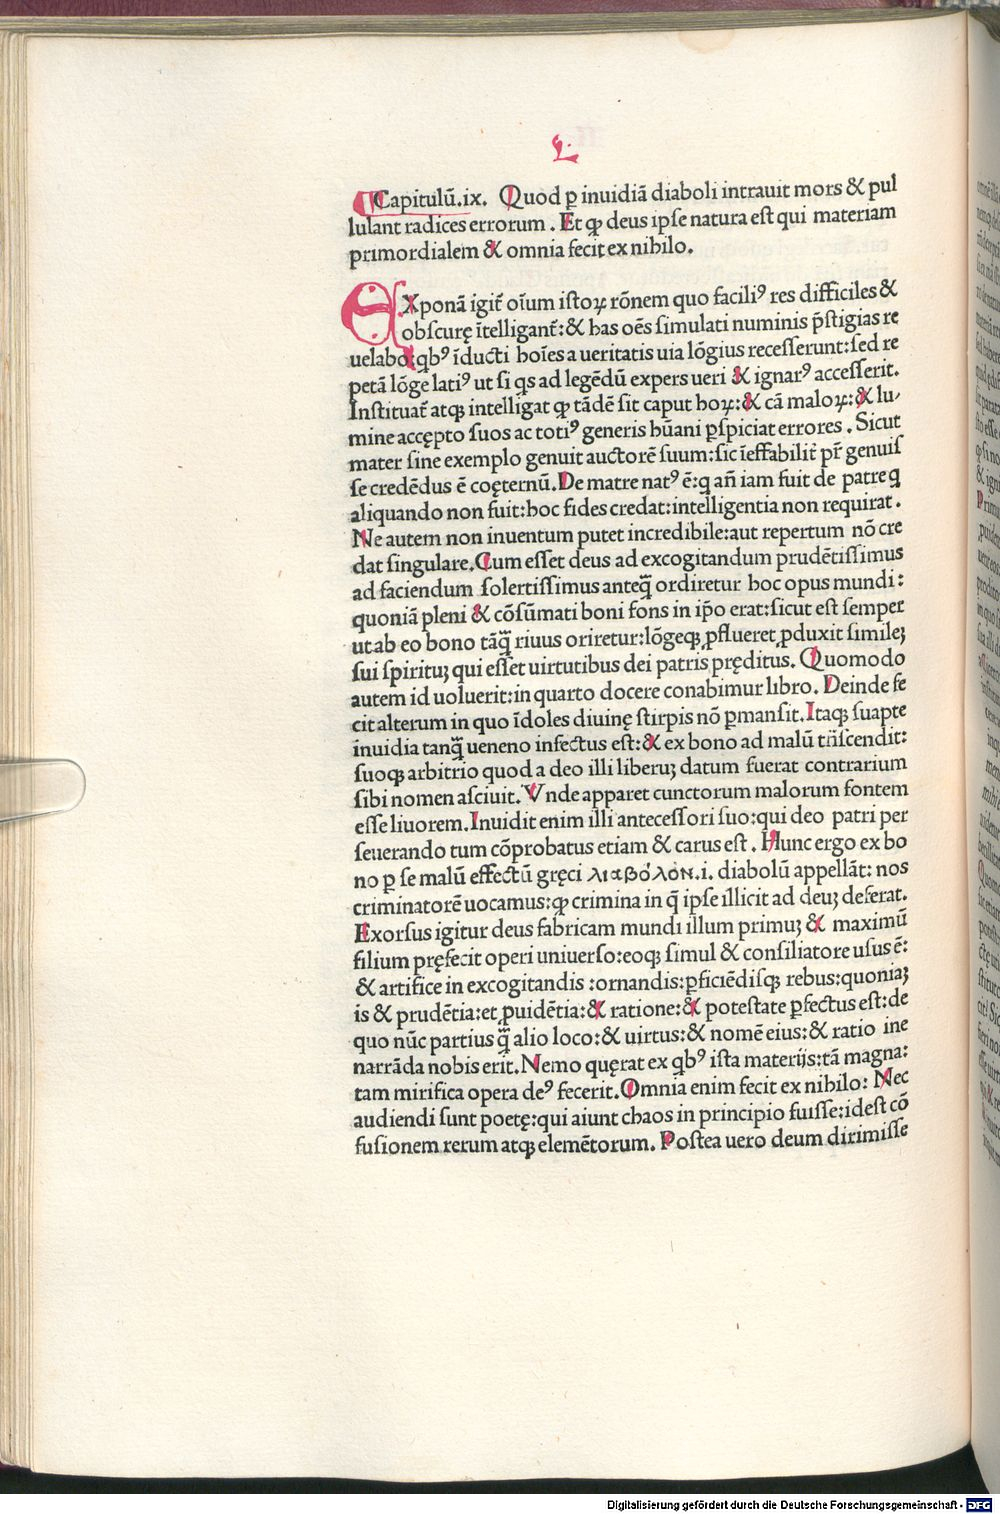 L.
Capitulū.ix. Quod ꝑ inuidiā diaboli intrauit mors & pul
lulant radices errorum . Et ꝙ deus ipſe natura eſt qui materiam
primordialem & omnia fecit ex nihilo.
EXponā igit̄ oīum iſtoꝝ rōnem quo faciliꝰ res difficiles &
obſcurę ītelligant̄:& has oēs ſimulati numinis p̄ſtigias re
uelabo:qbꝰ īducti hoīes a ueritatis uia lōgius receſſerunt:ſed re
petā lōge latiꝰ ut ſi qs ad legēdū expers ueri & ignarꝰ acceſſerit.
Inſtituat̄ atqꝫ intelligat ꝙ tādē ſit caput hoꝝ:& cā maloꝝ:& lu⸗
mine accępto ſuos ac totiꝰ generis hūani ꝑſpiciat errores . Sicut
mater ſine exemplo genuit auctorē ſuum:ſic īeffabilit̄ pr̄ genuiſ
ſe credēdus ē coęternū. De matre natꝰ ē:q an̄ iam fuit de patre q
aliquando non fuit:hoc fides credat:intelligentia non requirat .
Ne autem non inuentum putet incredibile:aut repertum nō cre
dat ſingulare. Cum eſſet deus ad excogitandum prudētiſſimus
ad faciendum ſolertiſſimus anteq̄ ordiretur hoc opus mundi:
quoniā pleni & cōſūmati boni fons in ip̄o erat:ſicut eſt ſemper
ut ab eo bono tāq̄ riuus oriretur:lōgeqꝫ ꝓflueret ꝓduxit ſimileꝫ
ſui ſpirituꝫ qui eſſet uirtutibus dei patris pręditus. Quomodo
autem id uoluerit:in quarto docere conabimur libro. Deinde fe
cit alterum in quo īdoles diuinę ſtirpis nō ꝑmanſit. Itaqꝫ ſuapte
inuidia tanq̄ ueneno infectus eſt:& ex bono ad malū trāſcendit:
ſuoqꝫ arbitrio quod a deo illi liberuꝫ datum fuerat contrarium
ſibi nomen aſciuit. Vnde apparet cunctorum malorum fontem
eſſe liuorem. Inuidit enim illi anteceſſori ſuo:qui deo patri per
ſeuerando tum cōprobatus etiam & carus eſt . Hunc ergo ex bo
no ꝑ ſe malū effectū gręci λιαβόλον.i. diabolū appellāt: nos
criminatorē uocamus:ꝙ crimina in q̄ ipſe illicit ad deuꝫ deferat.
Exorſus igitur deus fabricam mundi illum primuꝫ & maximū
filium pręfecit operi uniuerſo:eoqꝫ ſimul & conſiliatore uſus ē:
& artifice in excogitandis :ornandis:ꝑficiēdiſqꝫ rebus:quoniaꝫ
is & prudētia:et ꝓuidētia:& ratione:& poteſtate ꝑfectus eſt:de
quo nūc partius q̄ alio loco:& uirtus:& nomē eius:& ratio ine
narrāda nobis erit. Nemo quęrat ex qbꝰ iſta materijs:tā magna:
tam mirifica opera deꝰ fecerit. Omnia enim fecit ex nihilo: Nec
audiendi ſunt poetę:qui aiunt chaos in principio fuiſſe:ideſt cō
fuſionem rerum atqꝫ elemētorum. Poſtea uero deum dirimiſſe
Digitalisierung gefördert durch die Deutsche Forschungsgemeinschaft - DFG